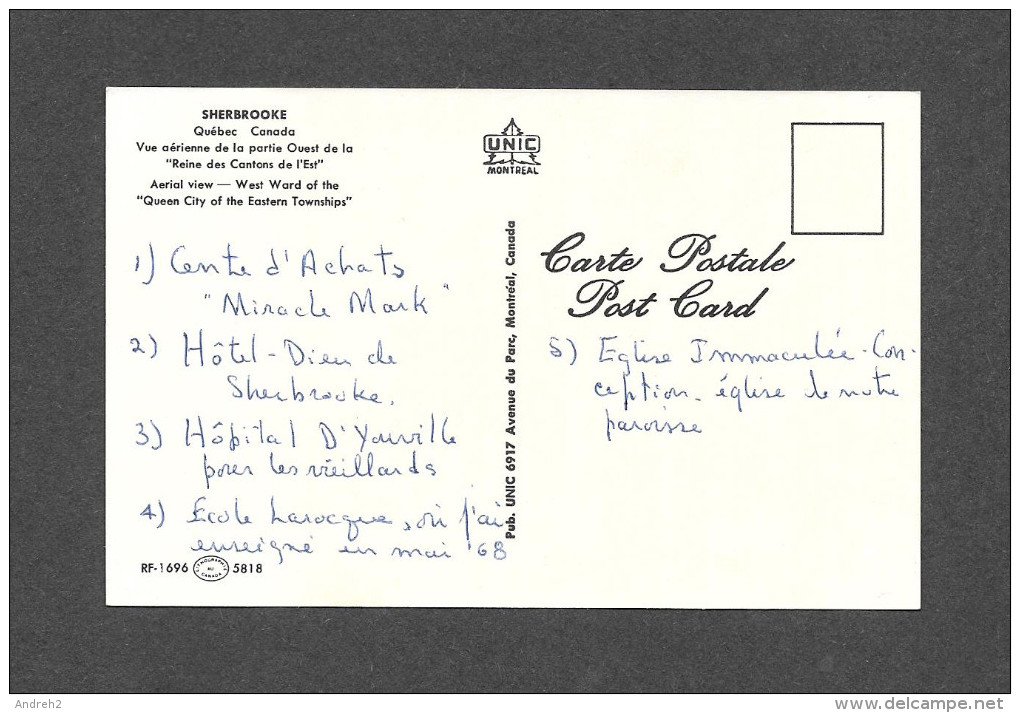 SHERBROOKE
Québec Canada
Vue aérienne de la partie Ouest de la
"Reine des Cantons de l'Est"
Aerial view — West Ward of the
"Queen City of the Eastern Townships"
1) Centre d'Achats
"Miracle Mark"
2) Hôtel-Dieu de
Sherbrooke.
3) Hôpital D'Youville
pour les vieillards
4) École Larocque, où j'ai
enseigné en mai '68
RF-1696
LITHOGRAPHIÉ
AU
CANADA
5818
UNIC
MONTREAL
Pub. UNIC 6917 Avenue du Parc, Montréal, Canada
Carte Postale
Post Card
5) Eglise Immaculée-Con-
ception. église de notre
paroisse
Andreh2
www.delcampe.net